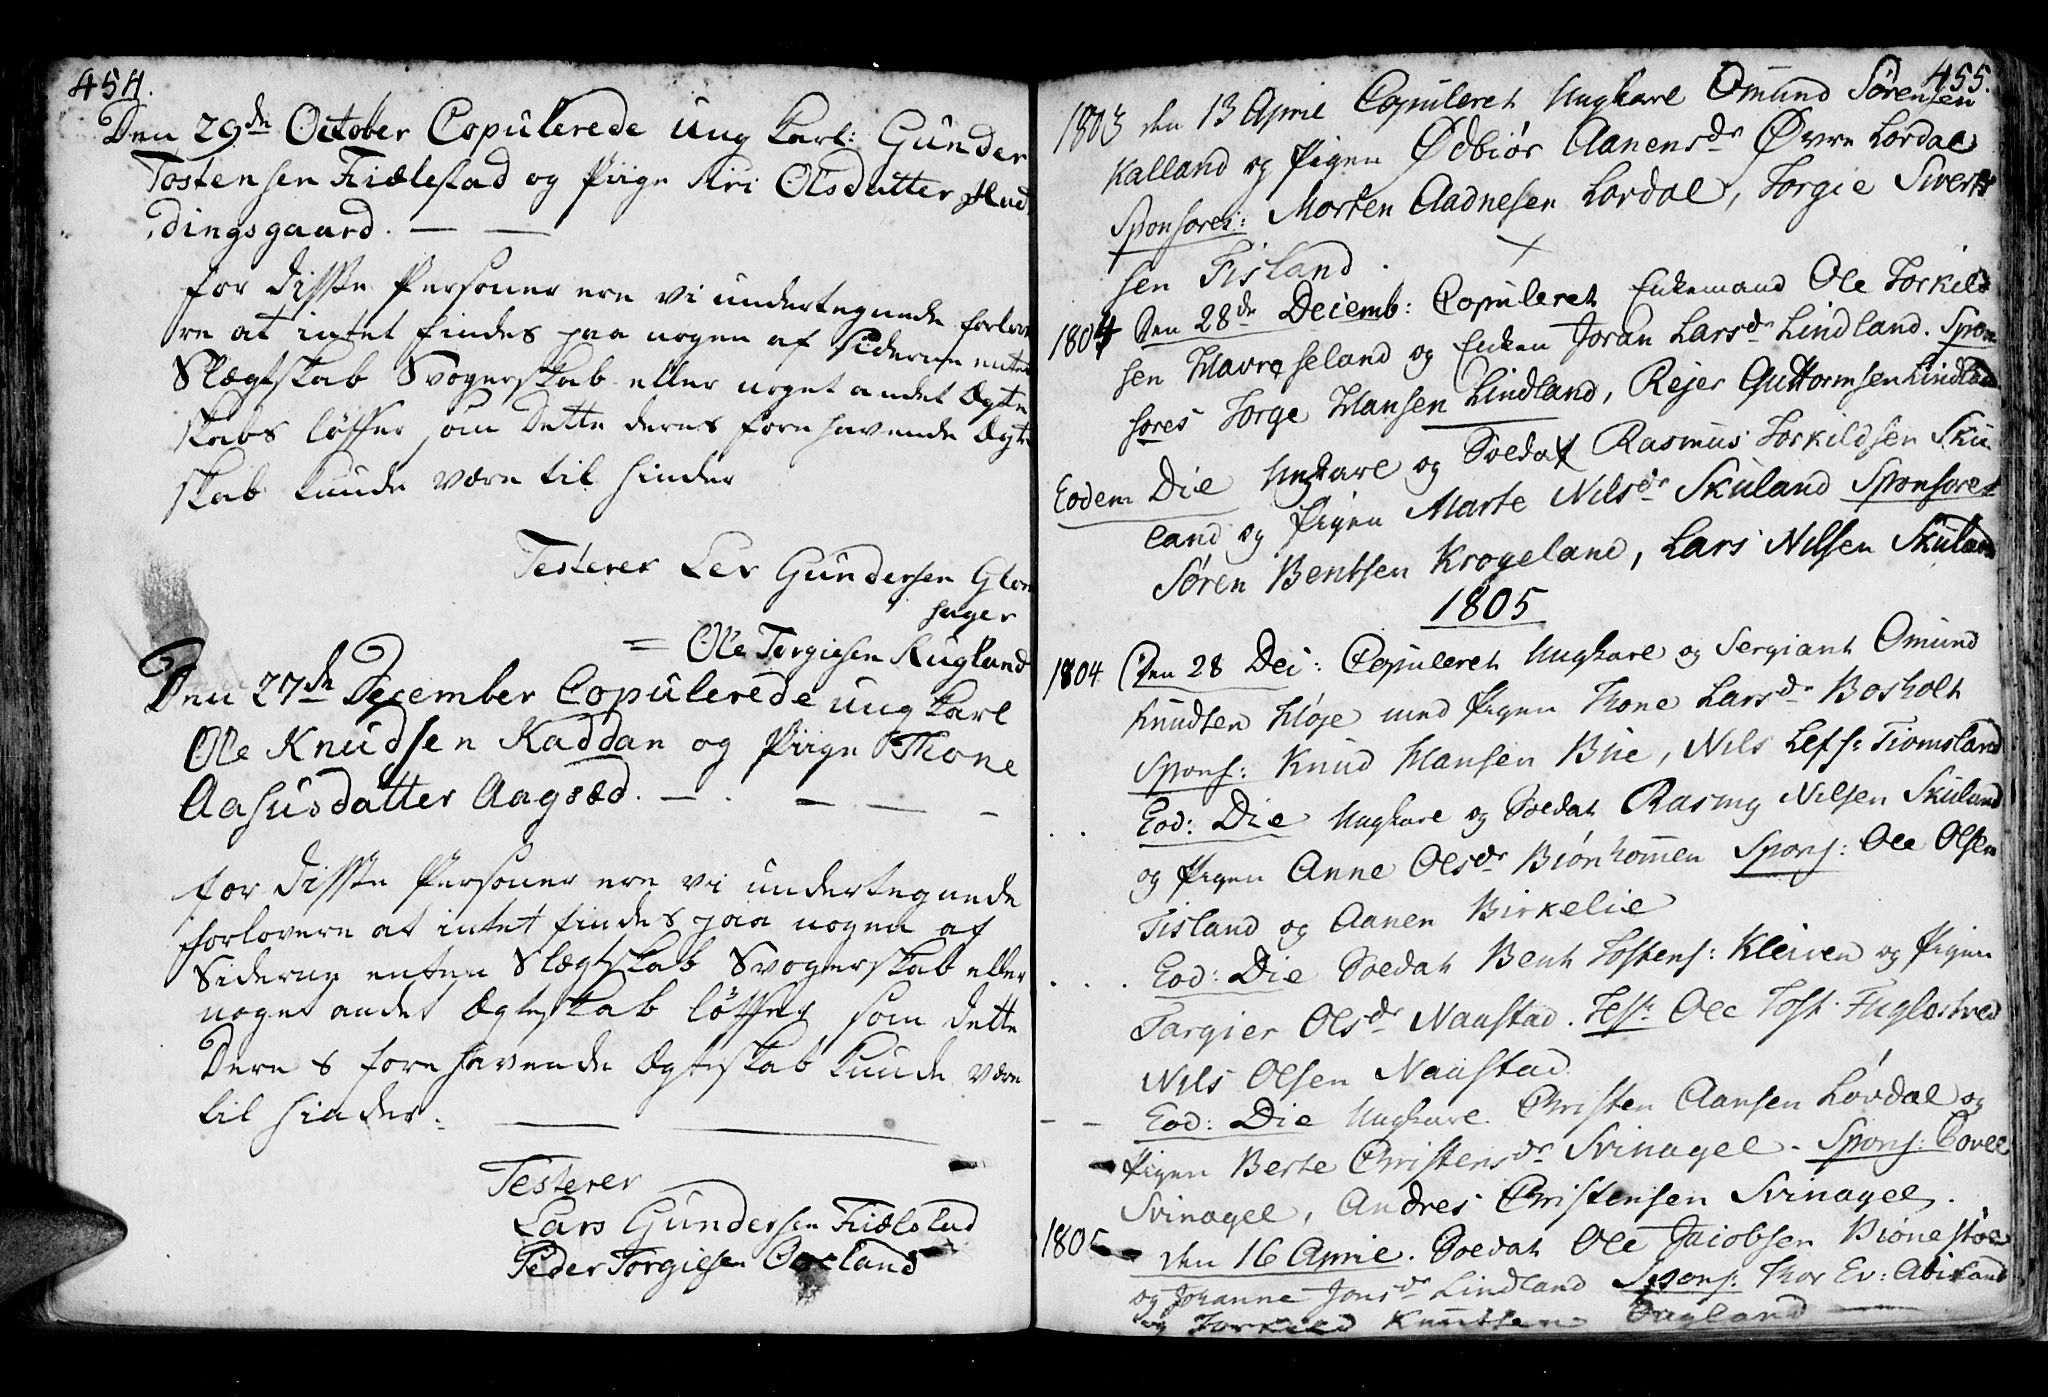 454.
Den 29de October Copulerede ung karl: Gunder
Tostensen Fiælestad og Piige Siri Olsdatter Had
dingsgaard. — —
for disse Personer ere vi undertegnede forlove
re at intet findes paa nogen af Siderne enten
Slægtskab Svogerskab eller noget andet Ægte
skabs løfter som dette deres forehavende Ægte
skab kunde være til hinder
Testerer Lev Gundersen
hager
= Ole Torgiesen Rugland
Den 27de December Copulerede ung karl
Ole Knudsen Kaddan og Piige Thone
Aasusdatter Aagsæd. — . — — -
for disse Personer ere vi undertegnede
forlovere at intet findes paa nogen af
Siderne enten Slægtskab Svogerskab eller
noget andet Ægteskab løfter som dette
Deres forehavende Ægteskab kunde være
til hinder.
Testerer
Lars Gundersen Fiælestad
Peder Torgiesen
455.
1803 den 13 April Copuleret Ungkarl Omund Sørensen
Kalland og Pigen Ødbiør Aanensdr Øvre Lordal
Sponsores: Morten Aadnesen Lordal, Torgie Sivert
sen Fisland.
1804 Den 28de Deicemb: Copuleret Enkemand Ole Torkild
sen Havreseland og Enken Joran Larsdr Lindland. Spon
sores Torge Hansen Lindland, Rejer Guttormsen Lindland
Eodem Die Ungkarl og Soldat Rasmus Torkildsen Sku
land og Pigen Marte Nilsdr Skuland Sponsores
Søren Bentsen Krogeland, Lars Nilsen Skuland
1805
1804 Den 28 Dei: Copuleret Ungkarl og Sergiant Omund
Knudsen Høje med Pigen Thone Larsdr Bosholt
Spons: Knud Hansen Bue, Nils Lefs: Tiomsland
Eod: Die Ungkarl og Soldat Rasmy Nilsen Skuland
og Pigen Anne Olsdr Biørkommen Spons: Ole Olsen
Fisland og Aanen Birkelie
Eod: Die Soldat Bent Tostens: Kleiven og Pigen
Targier Olsdr Naustad. Test: Ole Tost. Fuglestved
Nils Olsen Naustad
Eod: Die Ungkarl Christen Aansen Løvdal og
Pigen Berte Christensdr Svinagel. Spons:
Svinagel, Andres Christensen Svinagel.
1805 den 16 April. Soldat Ole Jacobsen Bionestøl
og Johanne Jonsdr Lindland Spons: Thor Ev: Abiland
og Torkild Knutsen